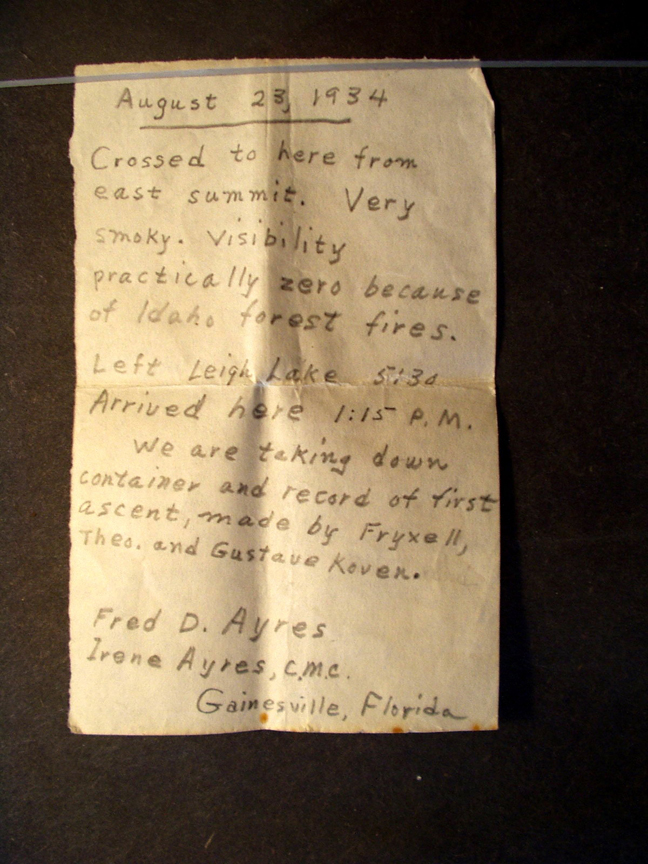 August 23, 1934
Crossed to here from
east summit. Very
smoky. Visibility
practically zero because
of Idaho forest fires.
Left Leigh Lake 5:30
Arrived here 1:15 P.M.
We are taking down
container and record of first
ascent, made by Fryxell,
Theo. and Gustave Koven.
Fred D. Ayres
Irene Ayres, C.M.C.
Gainesville, Florida